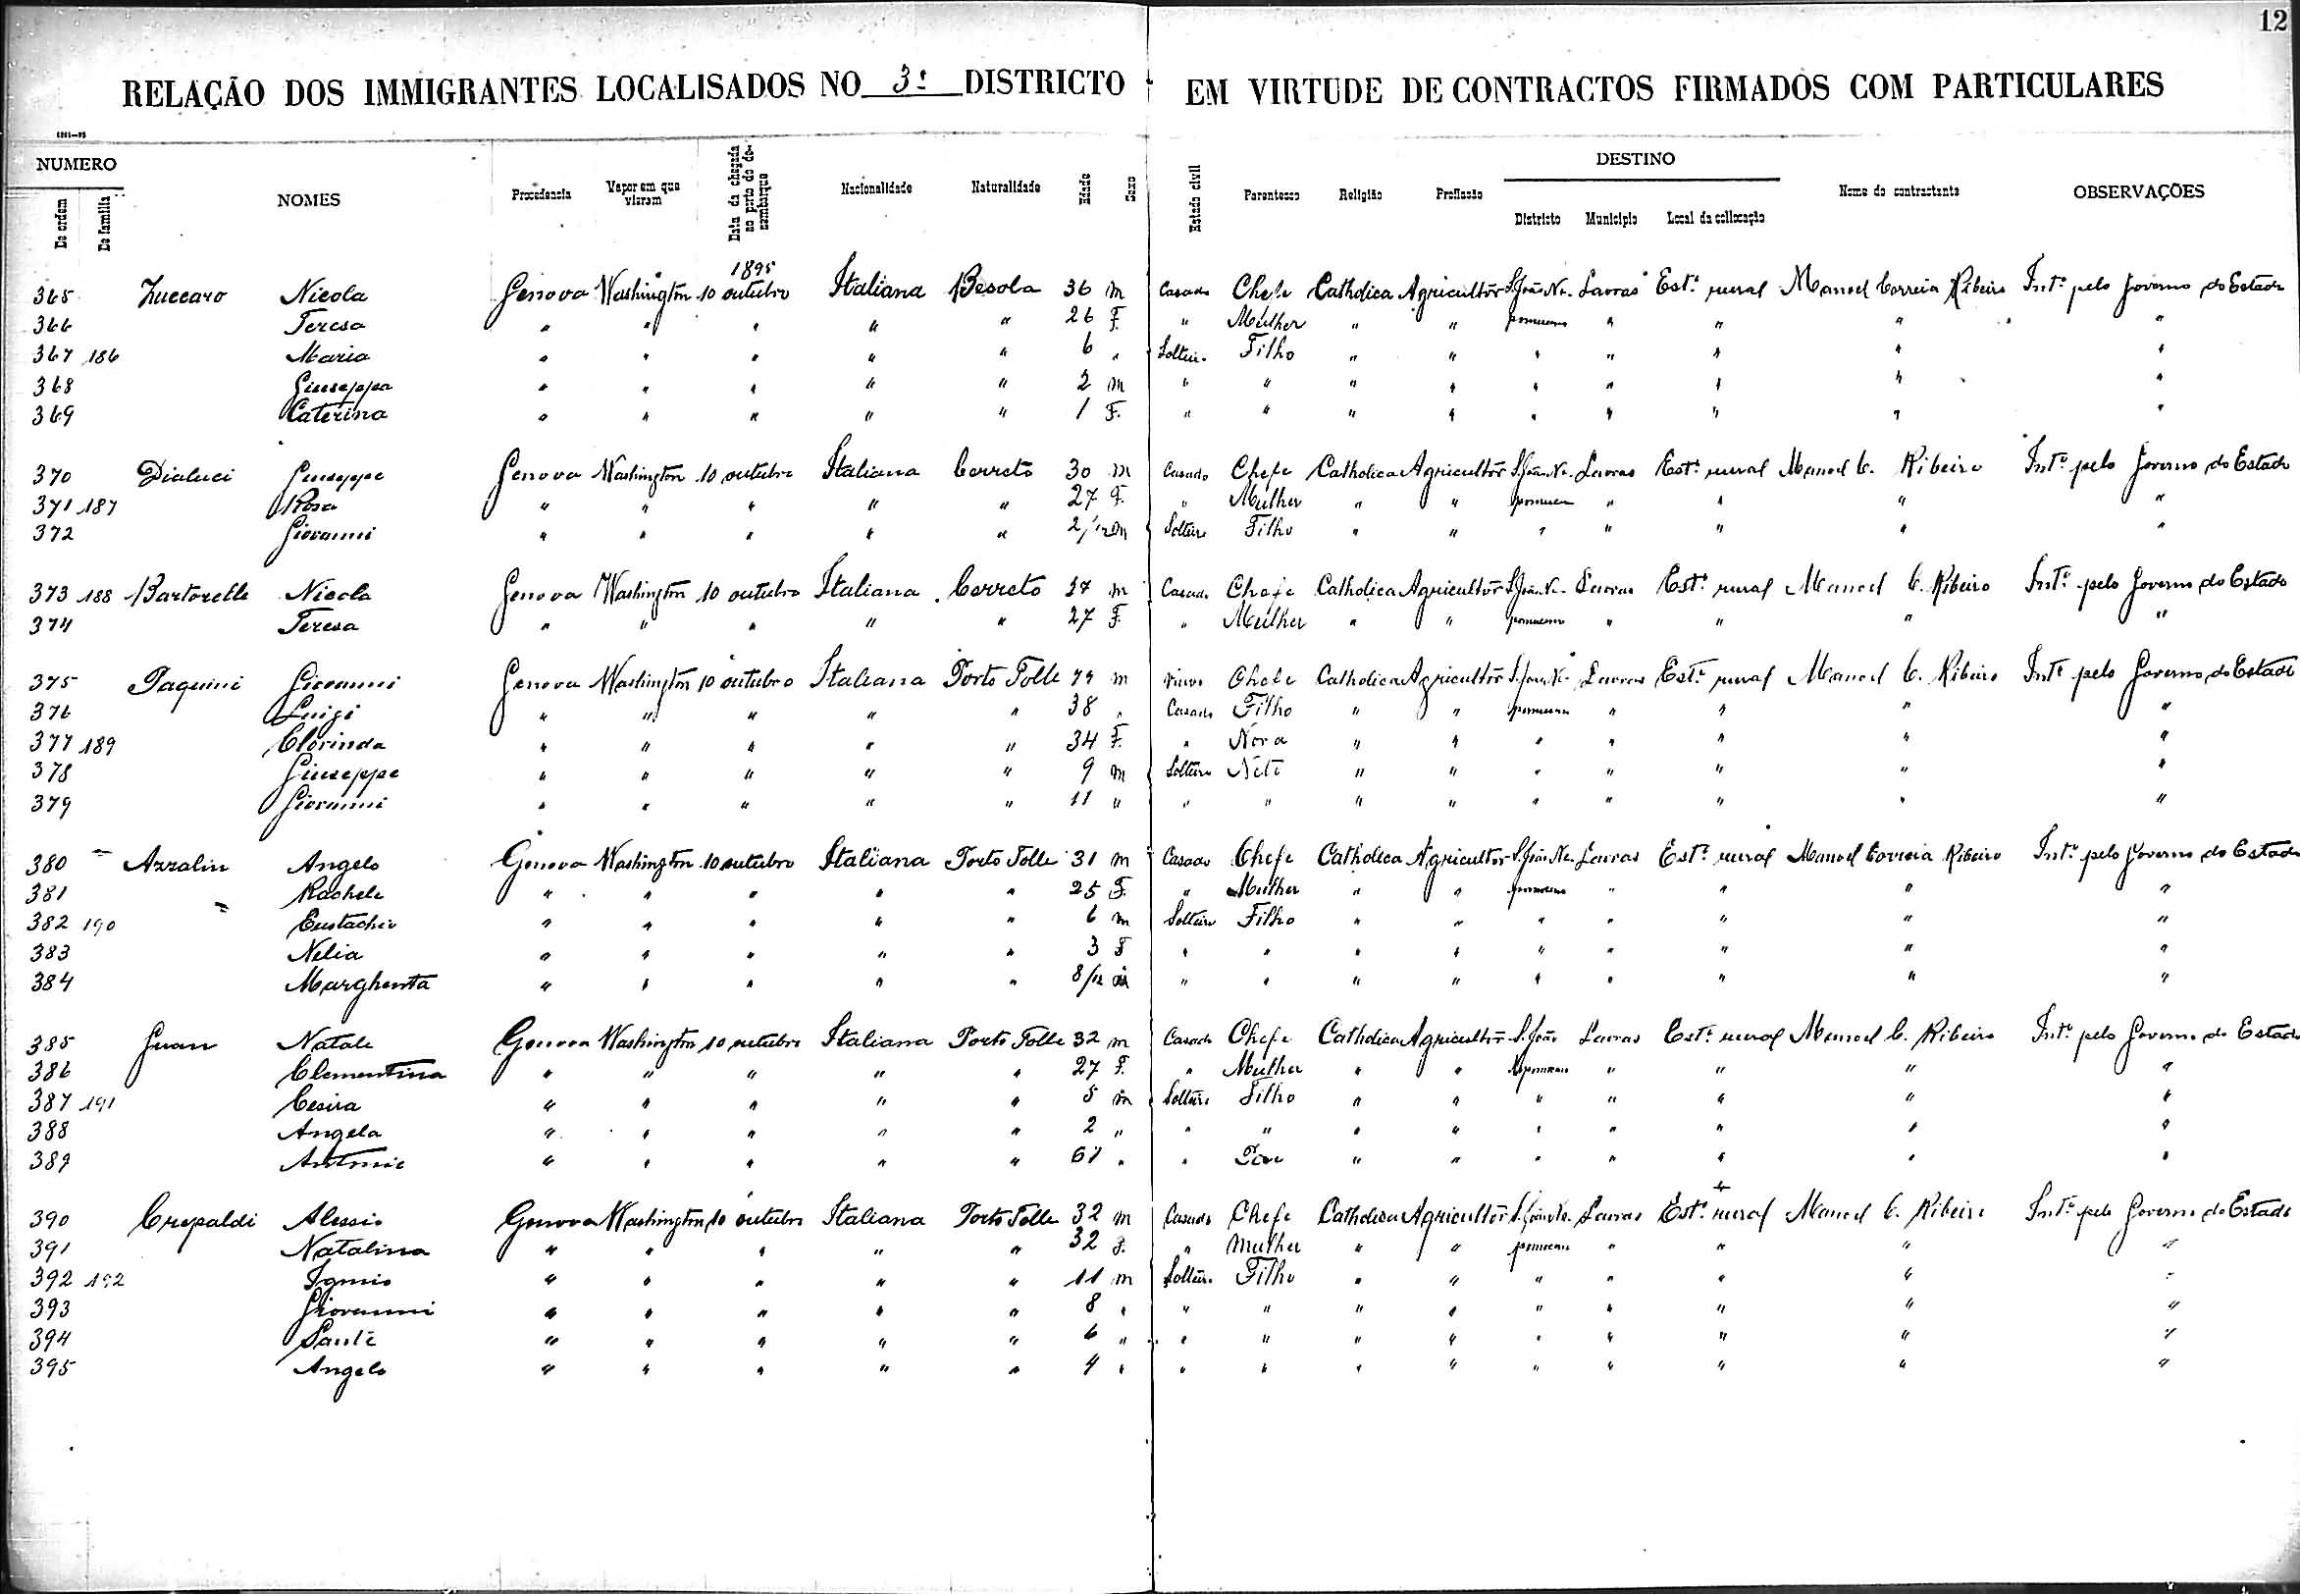 12
RELAÇÃO DOS IMMIGRANTES LOCALISADOS NO 3º DISTRICTO EM VIRTUDE DE CONTRACTOS FIRMADOS COM PARTICULARES
NUMERO
De ordem De familia NOMES Procedencia Vapor em que vieram Data da chegada no porto do desembarque Nacionalidade Naturalidade Edade Sexo Estado civil Parentesco Religião Profissão DESTINO Districto Municipio Local da collocação Nome do contractante OBSERVAÇÕES
1895
365 Zuccaro Nicola Genova Washington 10 outubro Italiana Besola 36 m Casado Chefe Catholica Agricultor S. João Ne. Lavras Estº rural Manoel Correia Ribeiro Intº pelo Governo do Estado
366 Teresa " " " " " 26 F. " Mulher " " pomuceno " " " "
367 186 Maria " " " " " 6 " Solteiro Filho " " " " " " "
368 Giuseppa " " " " " 2 m " " " " " " " " "
369 Caterina " " " " " 1 F. " " " " " " " " "
370 Dialuci Giuseppe Genova Washington 10 outubro Italiana Cerreto 30 m Casado Chefe Catholica Agricultor S. João Ne. Lavras Estº rural Manoel C. Ribeiro Intº pelo Governo do Estado
371 187 Rosa " " " " " 27 F. " Mulher " " pomucen " " " "
372 Giovanni " " " " " 2/12 m Solteiro Filho " " " " " " "
373 188 Bartorelle Nicola Genova Washington 10 outubro Italiana Cerreto m Casado Chefe Catholica Agricultor S. João Ne. Lavras Estº rural Manoel C. Ribeiro Intº pelo Governo do Estado
374 Teresa " " " " " 27 F. " Mulher " " pomuceno " " " "
375 Paquini Giovanni Genova Washington 10 outubro Italiana Porto Tolle m Viuvo Chefe Catholica Agricultor S. João Ne. Lavras Estº rural Manoel C. Ribeiro Intº pelo Governo do Estado
376 Luigi " " " " " 38 " Casado Filho " " pomuceno " " " "
377 189 Clorinda " " " " " 34 F. " Nora " " " " " " "
378 Giuseppe " " " " " 9 m Solteiro Neto " " " " " " "
379 Giovanni " " " " " 11 " " " " " " " " " "
380 Azzalin Angelo Genova Washington 10 outubro Italiana Porto Tolle 31 m Casado Chefe Catholica Agricultor S. João Ne. Lavras Estº rural Manoel Correia Ribeiro Intº pelo Governo do Estado
381 Rachele " " " " " 25 F. " Mulher " " pomuceno " " " "
382 190 Eustachio " " " " " 6 m Solteiro Filho " " " " " " "
383 Nelia " " " " " 3 F " " " " " " " " "
384 Margherita " " " " " 8/12 " " " " " " " " "
385 Guan Natale Genova Washington 10 outubro Italiana Porto Tolle 32 m Casado Chefe Catholica Agricultor S. João Lavras Estº rural Manoel C. Ribeiro Intº pelo Governo do Estado
386 Clementina " " " " " 27 F. " Mulher " " Nepomuceno " " " "
387 191 Cesira " " " " " 5 m Solteiro Filho " " " " " " "
388 Angela " " " " " 2 " " " " " " " " " "
389 Antonio " " " " " " " Pae " " " " " " "
390 Crepaldi Alessio Genova Washington 10 outubro Italiana Porto Tolle 32 m Casado Chefe Catholica Agricultor S. João Ne. Lavras Estº rural Manoel C. Ribeiro Intº pelo Governo do Estado
391 Natalina " " " " " 32 F. " Mulher " " pomuceno " " " "
392 192 " " " " " 11 m Solteiro Filho " " " " " " "
393 Giovanni " " " " " 8 " " " " " " " " " "
394 Sante " " " " " 6 " " " " " " " " " "
395 Angelo " " " " " 4 " " " " " " " " " "